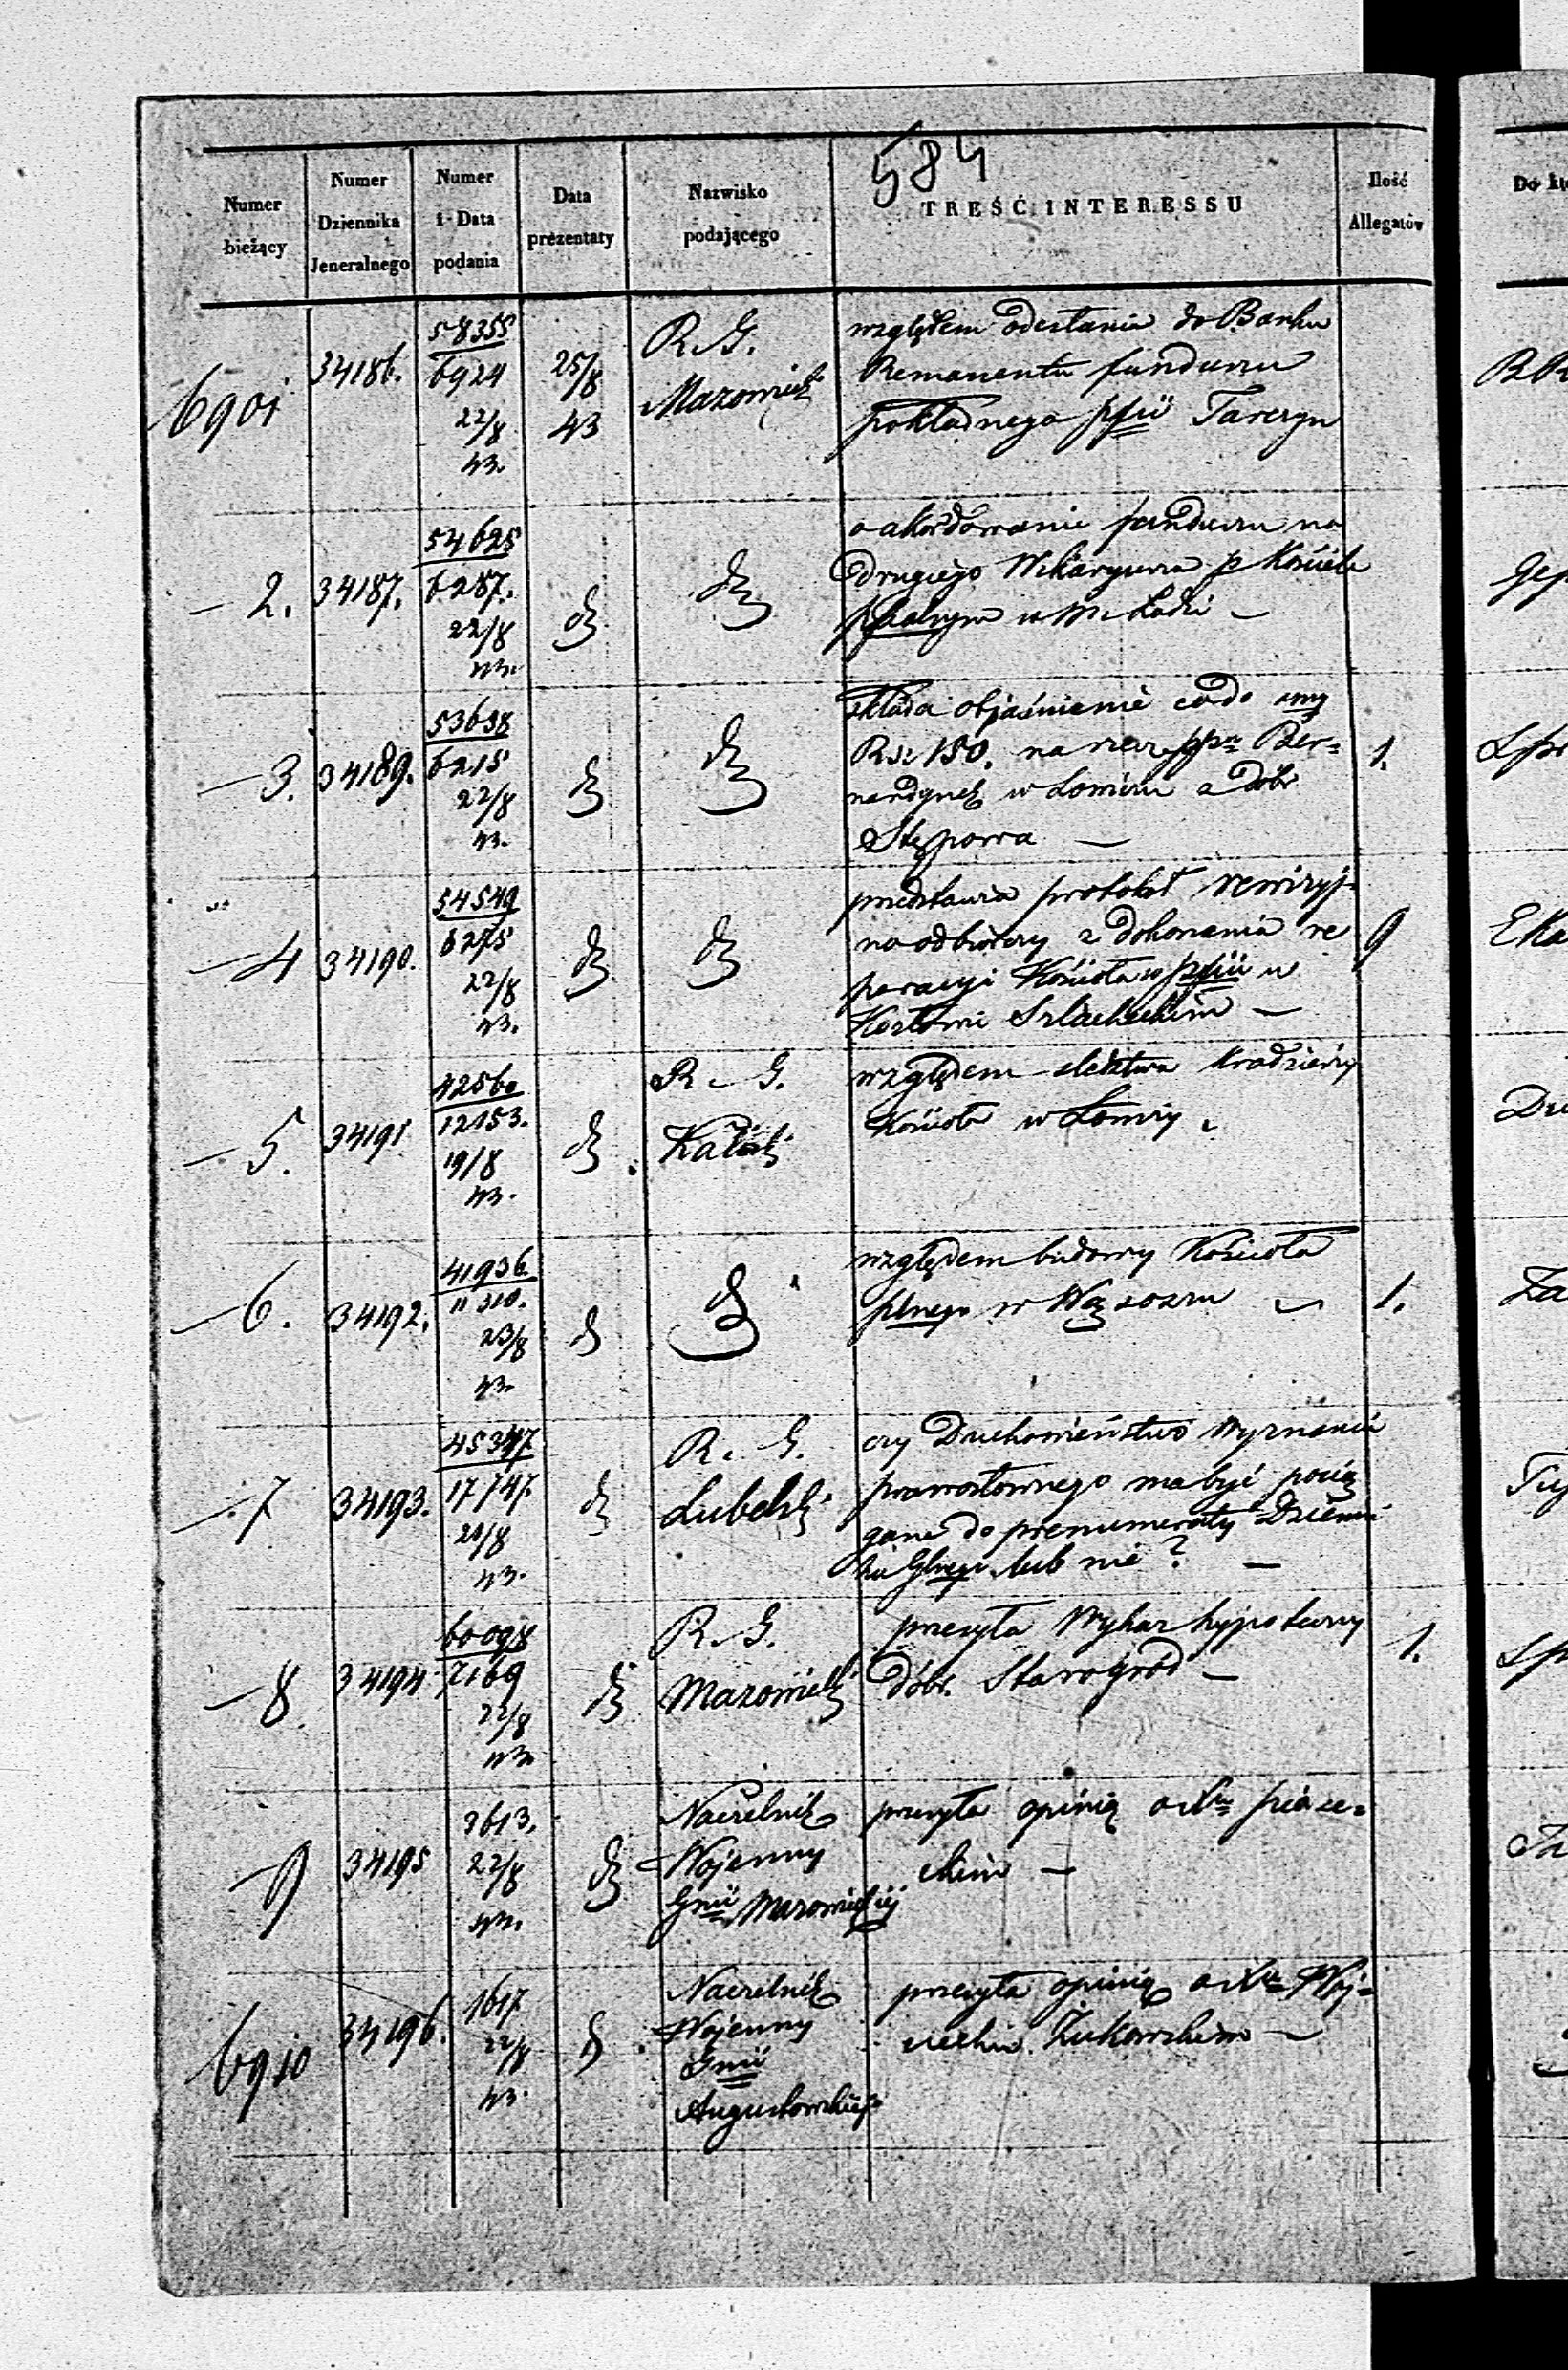 584
Numer bieżący
Numer Dziennika Jeneralnego
Numer i Data podania
Data prezentaty
Nazwisko podającego
TREŚĆ INTERESSU
Ilość Allegatów
6901
34186.
58355
6924
22/8
43.
25/8
43
R. G.
Mazowieck
względem odesłania do Banku
Remanentu funduszu
pokładnego pfii Tarczyn
2.
34187.
54625
6287.
22/8
43.
d
d
o akordowanie funduszu na
drugiego Wikaryusza p Kościele
w m. Łodzi –
3.
34189.
53638
6215
22/8
43.
d
d
składa objaśnienie co do smy
Rsr 150. na rzecz Ber=
nardynek w Łowiczu z dóbr
Stępowa —
1.
4
34190.
54549
6275
22/8
43.
d
d
przedstawia protokół rewizyj=
no odbiorczy z dokonania re
paracyi Kościoła w
Kozłowi Szlacheckim —
9
5.
34191
42560
12153.
19/8
43.
d
R. G.
Kaliski
względem śledztwa kradzieży
Kościoła w
6.
34192.
41936.
11310.
23/8
43.
d
d
względem budowy Kościoła
plnego w Wąsoszu
1.
7
34193.
45347
17747.
21/8
43.
d
R. G.
Lubelski
czy Duchowieństwo Wyznania
prawosławnego ma być pocią
gane do prenumeraty Dzienni
ka Głnego lub nie? —
8
34194
60098
7169
22/8
43
d
R. G.
Mazowiecki
przesyła Wykaz hypoteczny
dóbr Starogród –
1.
9
34195
3613.
22/8
43.
d
Naczelnik
Wojenny
Gnii Mazowieckiej
przesyła opinią o Xu Piase=
ckim —
6910
34196.
1617
22/8
43.
d
Naczelnik
Wojenny
Gnii
Augustowskiej
przesyła opinią o Xu Woj=
ciechu Żukowskim —
Do